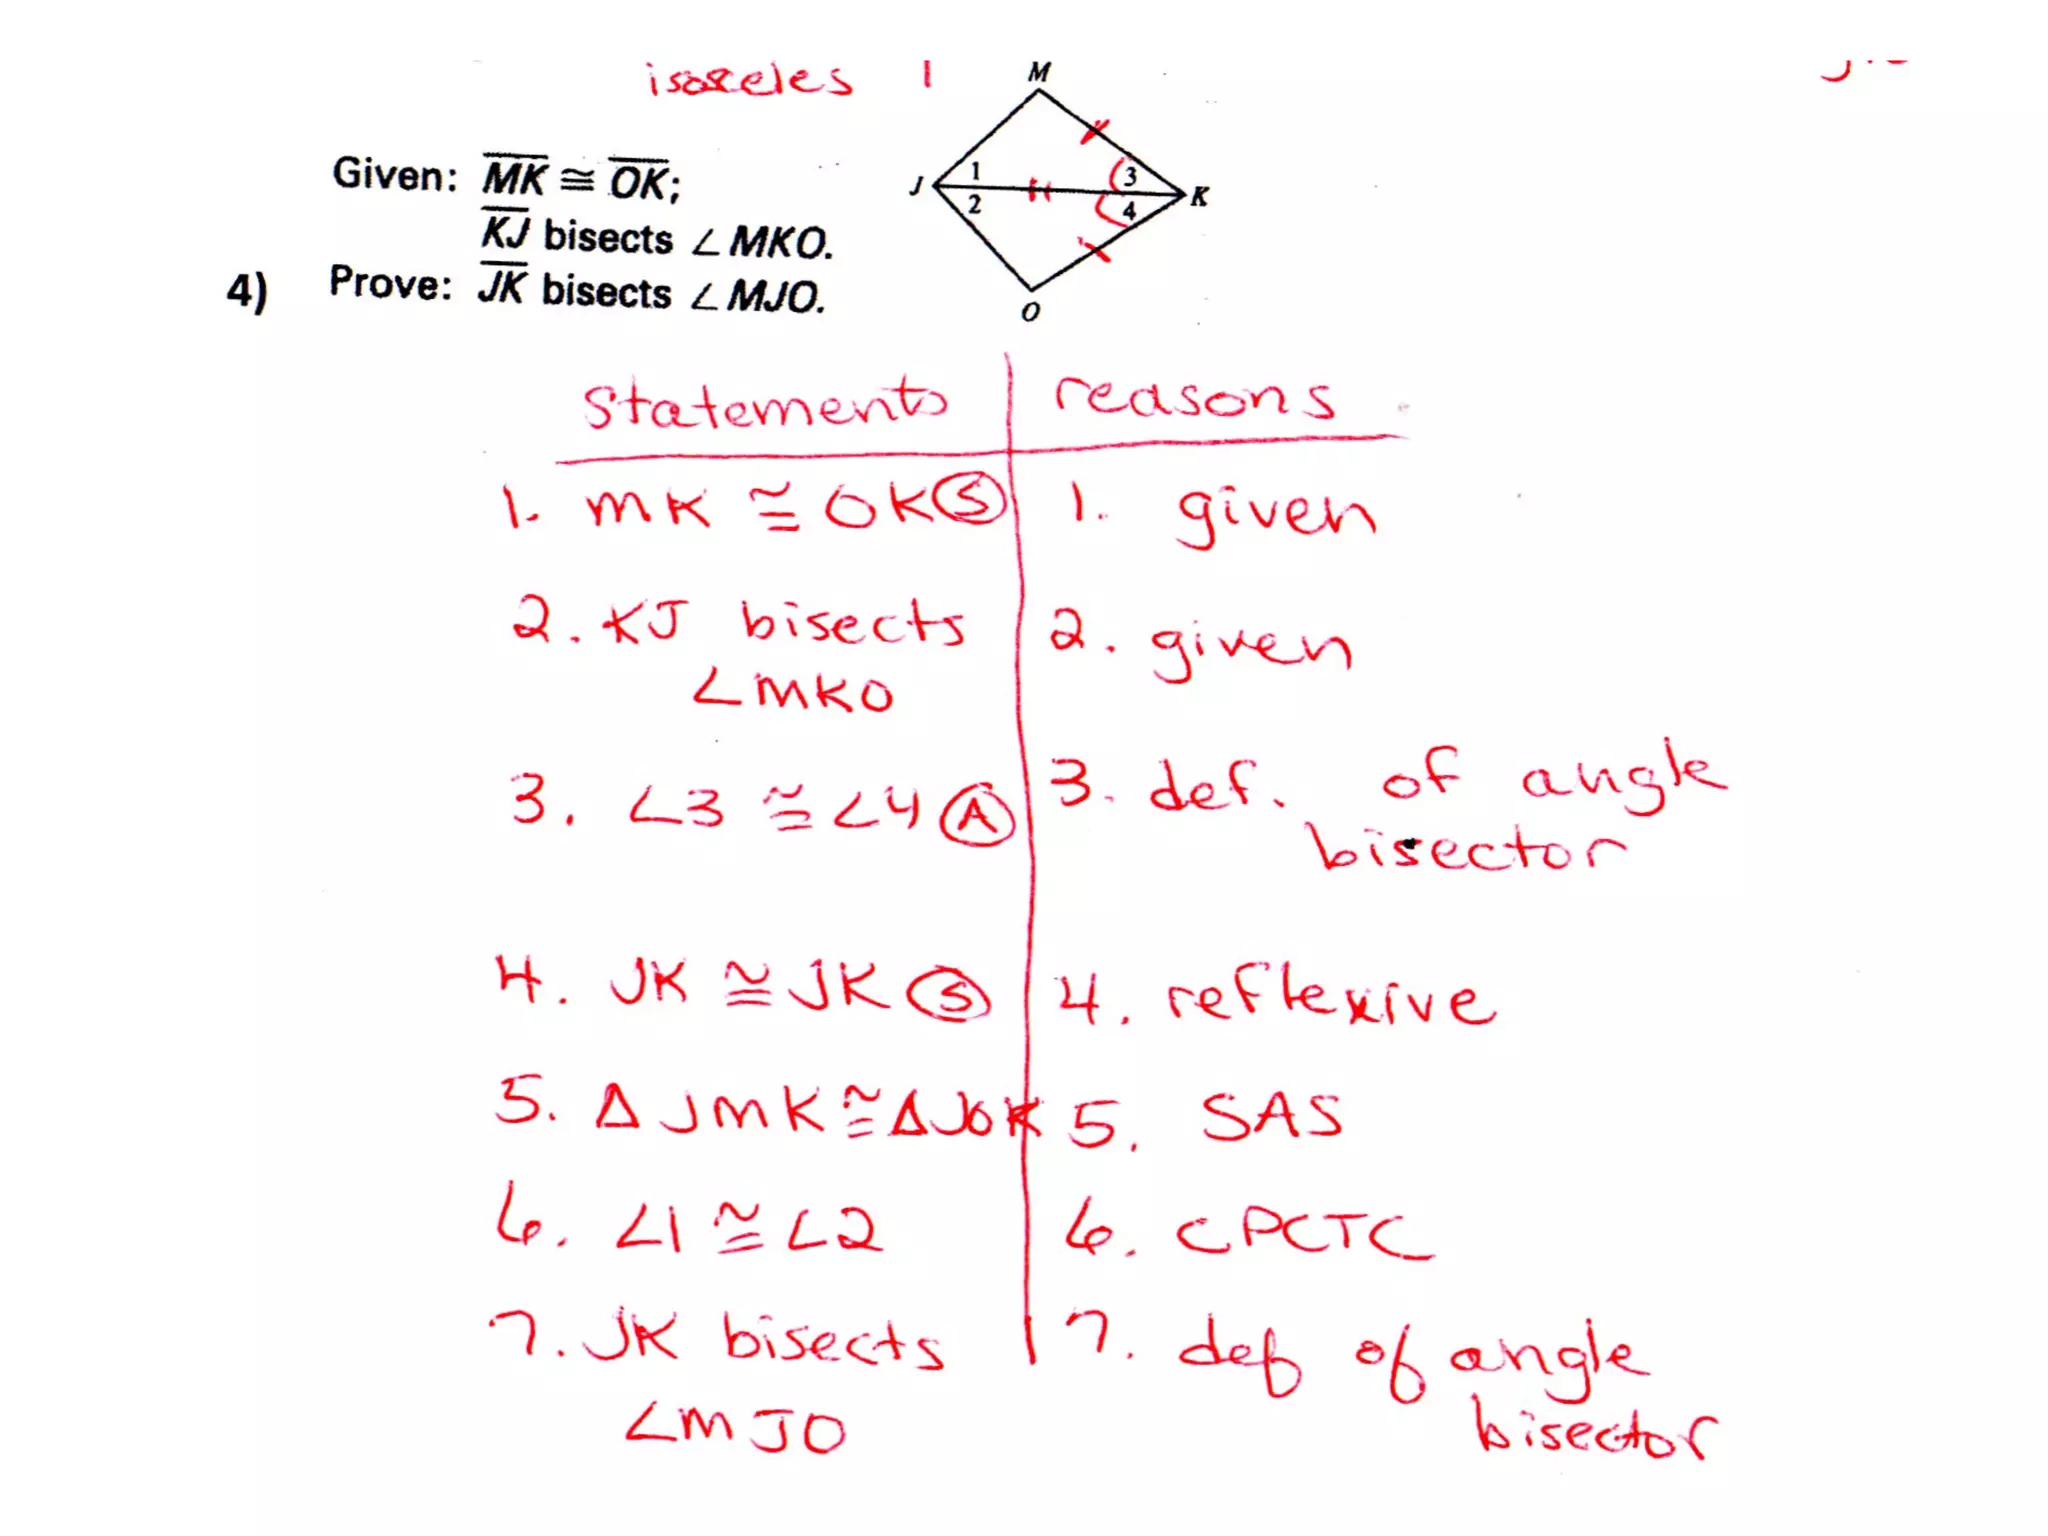 isosceles
M
Given: MK ≅ OK;
1
3
J
K
2
4
KJ bisects ∠MKO.
4) Prove: JK bisects ∠MJO.
O
statements reasons
1. MK ≅ OK Ⓢ 1. given
2. KJ bisects 2. given
∠MKO
3. ∠3 ≅ ∠4 Ⓐ 3. def. of angle
bisector
4. JK ≅ JK Ⓢ 4. reflexive
5. Δ JMK ≅ ΔJOK 5. SAS
6. ∠1 ≅ ∠2 6. CPCTC
7. JK bisects 7. def of angle
∠MJO bisector